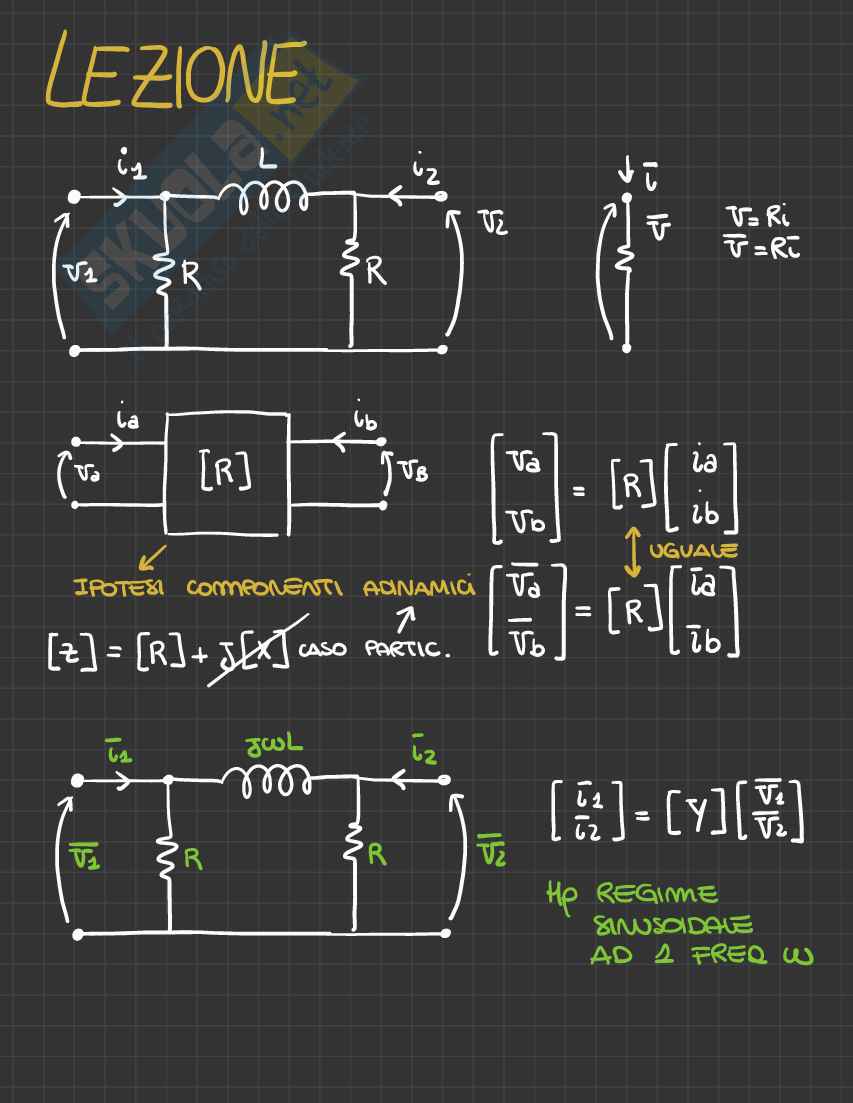 LEZIONE
SKUOLA.net
i1 L i2
v1 R R v2
i̅
v̅
v = Ri
v̅ = Ri̅
ia ib
va [R] vB
[va vb] = [R] [ia ib]
UGUALE
IPOTESI COMPONENTI ADINAMICI
[v̅a v̅b] = [R] [i̅a i̅b]
[z] = [R] + j[X] CASO PARTIC.
i̅1 jωL i̅2
v̅1 R R v̅2
[i̅1 i̅2] = [Y] [v̅1 v̅2]
Hp REGIME
SINUSOIDALE
AD 1 FREQ ω